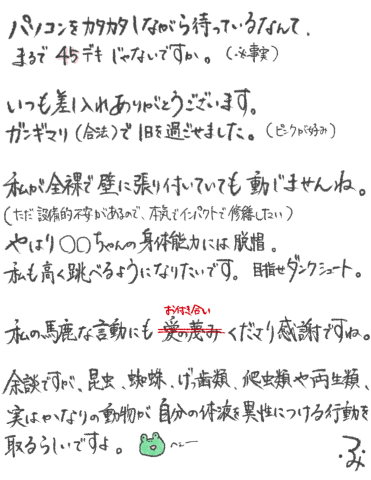 パソコンをカタカタしながら待っているなんて、
まるで 45デキ じゃないですか。(※事実)
いつも差し入れありがとうございます。
ガンギマリ(合法)で1日を過ごせました。(ピンクが好み)
私が全裸で壁に張り付いていても動じませんね。
(ただ設備的不安があるので、本気でインパクトで修繕したい)
やはり〇〇ちゃんの身体能力には脱帽。
私も高く跳べるようになりたいです。目指せダンクシュート。
お付き合い
私の馬鹿な言動にも 愛の蔑み くださり感謝ですね。
余談ですが、昆虫、蜘蛛、げっ歯類、爬虫類や両生類、
実はかなりの動物が自分の体液を異性につける行動を
取るらしいですよ。
へぇー
ふみ